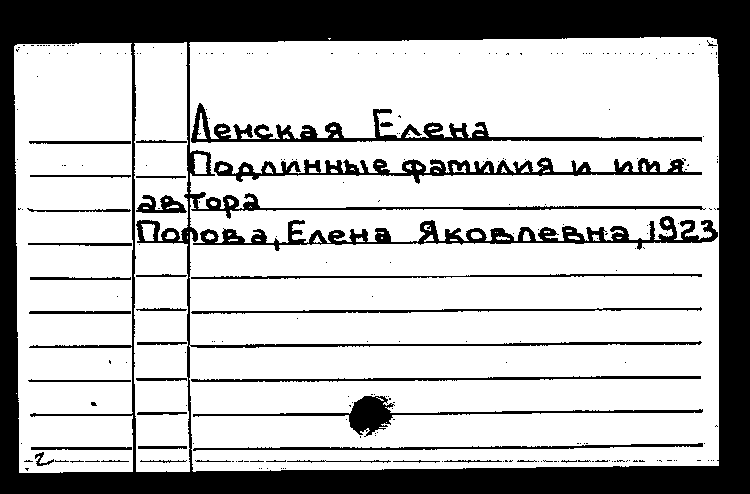 Ленская Елена
Подлинные фамилия и имя
автора
Попова, Елена Яковлевна, 1923
2